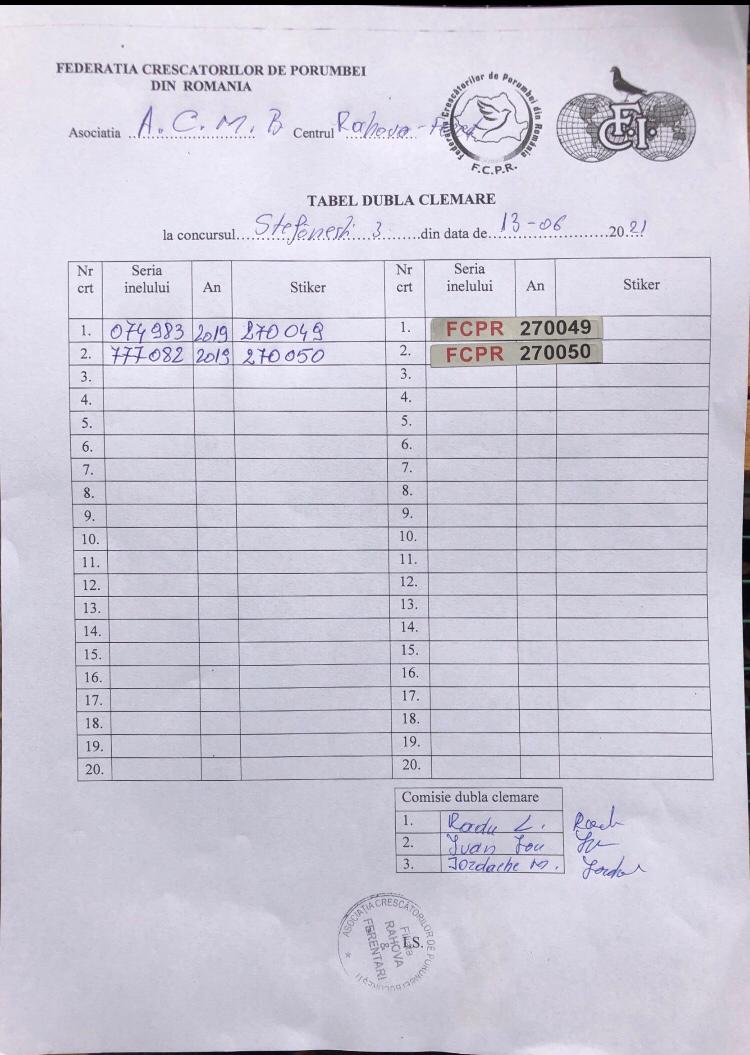 FEDERATIA CRESCATORILOR DE PORUMBEI
DIN ROMANIA
Federatia Crescătorilor de Porumbei din România
F.C.P.R.
FCI
Asociatia A. C. M. B Centrul Rahova -
TABEL DUBLA CLEMARE
la concursul Stefănesti 3 din data de 13-06 2021
Nr crt Seria inelului An Stiker Nr crt Seria inelului An Stiker
1. 074983 2019 270049 1. FCPR 270049
2. 777082 2019 270050 2. FCPR 270050
3. 3.
4. 4.
5. 5.
6. 6.
7. 7.
8. 8.
9. 9.
10. 10.
11. 11.
12. 12.
13. 13.
14. 14.
15. 15.
16. 16.
17. 17.
18. 18.
19. 19.
20. 20.
Comisie dubla clemare
1. Radu L.
2. Ivan Ion
3. Iordache M.
ASOCIATIA CRESCĂTORILOR DE PORUMBEI BUCURESTI
Filiala
RAHOVA
&
FERENTARI
LS.